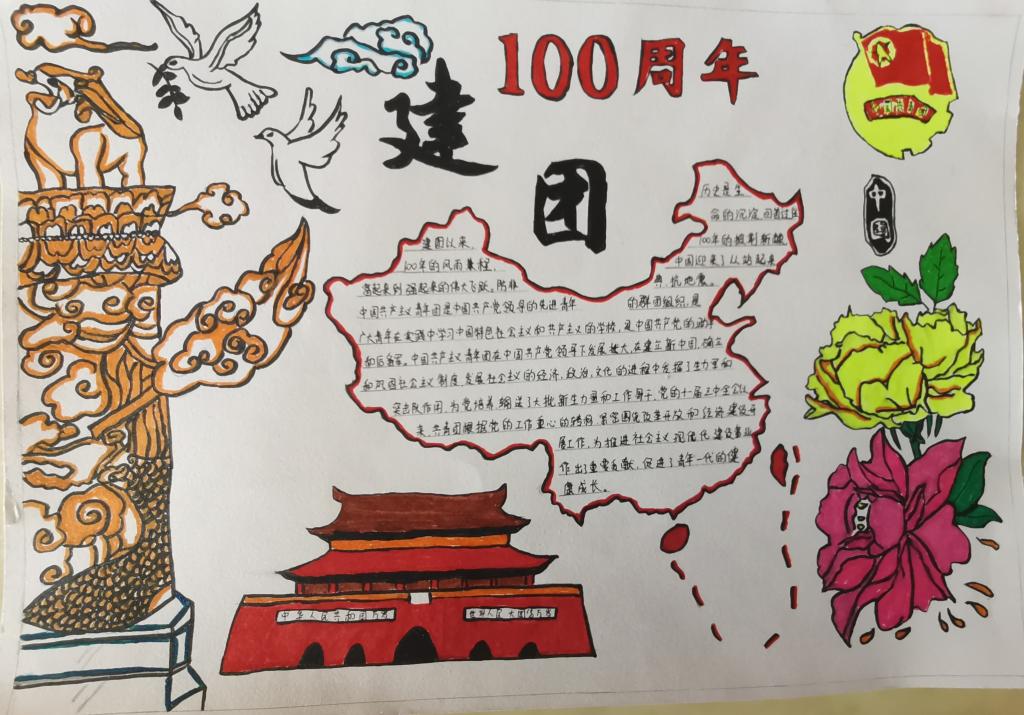 100周年
建
团
中国
历史是生
命的沉淀,回首过往
建团以来,
100年的披荆斩棘
100年的风雨兼程,
中国迎来了从站起来
富起来到强起来的伟大飞跃。
抗地震。
中国共产主义青年团是中国共产党领导的先进青年
的群团组织,是
广大青年在实践中学习中国特色社会主义和共产主义的学校,是中国共产党的助手
和后备军。中国共产主义青年团在中国共产党领导下发展壮大,在建立新中国,确立
和巩固社会主义制度,发展社会主义的经济,政治,文化的进程中发挥了生力军和
突击队作用,为党培养、输送了大批新生力量和工作骨干。党的十一届三中全会以
来,共青团根据党的工作重心的转移,紧密围绕改革开放和经济建设开
展工作,为推进社会主义现代化建设事业
作出了重要贡献,促进了青年一代的健
康成长。
中华人民共和国万岁
世界人民大团结万岁